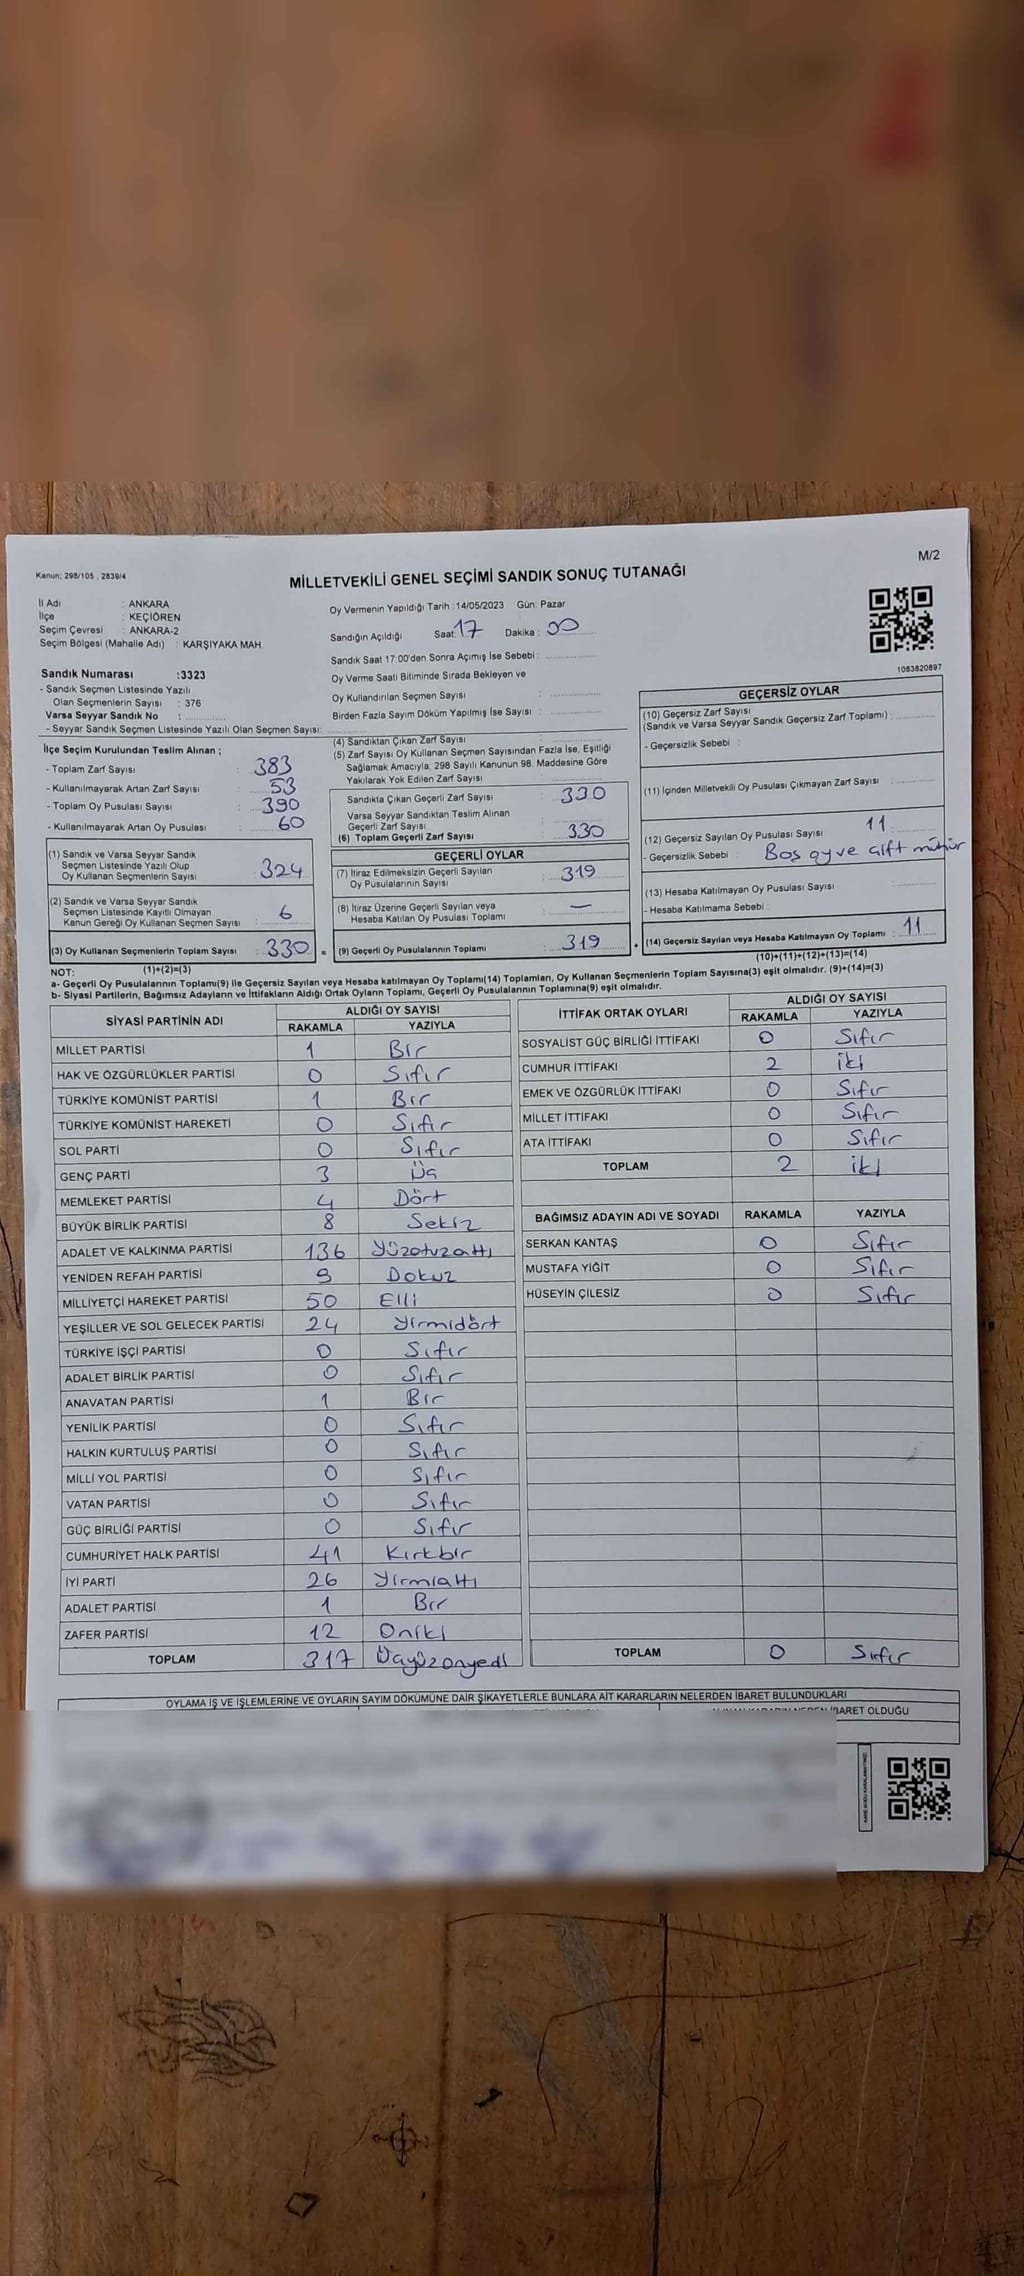 M/2
Kanun; 298/105 , 2839/4
MİLLETVEKİLİ GENEL SEÇİMİ SANDIK SONUÇ TUTANAĞI
İl Adı : ANKARA
İlçe : KEÇİÖREN
Seçim Çevresi : ANKARA-2
Seçim Bölgesi (Mahalle Adı) : KARŞIYAKA MAH.
Oy Vermenin Yapıldığı Tarih :14/05/2023 Gün: Pazar
Sandığın Açıldığı Saat:17 Dakika : 00
Sandık Saat 17:00'den Sonra Açımış İse Sebebi :
Oy Verme Saati Bitiminde Sırada Bekleyen ve
Oy Kullandırılan Seçmen Sayısı :
Birden Fazla Sayım Döküm Yapılmış İse Sayısı :
1083820897
Sandık Numarası :3323
- Sandık Seçmen Listesinde Yazılı
Olan Seçmenlerin Sayısı : 376
Varsa Seyyar Sandık No :
- Seyyar Sandık Seçmen Listesinde Yazılı Olan Seçmen Sayısı:
İlçe Seçim Kurulundan Teslim Alınan ;
- Toplam Zarf Sayısı : 383
- Kullanılmayarak Artan Zarf Sayısı : 53
- Toplam Oy Pusulası Sayısı : 390
- Kullanılmayarak Artan Oy Pusulası : 60
(1) Sandık ve Varsa Seyyar Sandık
Seçmen Listesinde Yazılı Olup
Oy Kullanan Seçmenlerin Sayısı : 324
(2) Sandık ve Varsa Seyyar Sandık
Seçmen Listesinde Kayıtlı Olmayan
Kanun Gereği Oy Kullanan Seçmen Sayısı : 6
(3) Oy Kullanan Seçmenlerin Toplam Sayısı : 330 =
(4) Sandıktan Çıkan Zarf Sayısı :
(5) Zarf Sayısı Oy Kullanan Seçmen Sayısından Fazla İse, Eşitliği
Sağlamak Amacıyla; 298 Sayılı Kanunun 98. Maddesine Göre
Yakılarak Yok Edilen Zarf Sayısı :
Sandıkta Çıkan Geçerli Zarf Sayısı : 330
Varsa Seyyar Sandıktan Teslim Alınan
Geçerli Zarf Sayısı :
(6) Toplam Geçerli Zarf Sayısı : 330
GEÇERLİ OYLAR
(7) İtiraz Edilmeksizin Geçerli Sayılan
Oy Pusulalarının Sayısı : 319
(8) İtiraz Üzerine Geçerli Sayılan veya
Hesaba Katılan Oy Pusulası Toplamı : —
(9) Geçerli Oy Pusulalarının Toplamı : 319 +
GEÇERSİZ OYLAR
(10) Geçersiz Zarf Sayısı
(Sandık ve Varsa Seyyar Sandık Geçersiz Zarf Toplamı) :
- Geçersizlik Sebebi :
(11) İçinden Milletvekili Oy Pusulası Çıkmayan Zarf Sayısı :
(12) Geçersiz Sayılan Oy Pusulası Sayısı : 11
- Geçersizlik Sebebi : Boş oy ve çift mühür
(13) Hesaba Katılmayan Oy Pusulası Sayısı :
- Hesaba Katılmama Sebebi :
(14) Geçersiz Sayılan veya Hesaba Katılmayan Oy Toplamı : 11
NOT: (1)+(2)=(3) (10)+(11)+(12)+(13)=(14)
a- Geçerli Oy Pusulalarının Toplamı(9) ile Geçersiz Sayılan veya Hesaba katılmayan Oy Toplamı(14) Toplamları, Oy Kullanan Seçmenlerin Toplam Sayısına(3) eşit olmalıdır. (9)+(14)=(3)
b- Siyasi Partilerin, Bağımsız Adayların ve İttifakların Aldığı Ortak Oyların Toplamı, Geçerli Oy Pusulalarının Toplamına(9) eşit olmalıdır.
SİYASİ PARTİNİN ADI ALDIĞI OY SAYISI
RAKAMLA YAZIYLA
MİLLET PARTİSİ 1 Bir
HAK VE ÖZGÜRLÜKLER PARTİSİ 0 Sıfır
TÜRKİYE KOMÜNİST PARTİSİ 1 Bir
TÜRKİYE KOMÜNİST HAREKETİ 0 Sıfır
SOL PARTİ 0 Sıfır
GENÇ PARTİ 3 Üç
MEMLEKET PARTİSİ 4 Dört
BÜYÜK BİRLİK PARTİSİ 8 Sekiz
ADALET VE KALKINMA PARTİSİ 136 Yüzotuzaltı
YENİDEN REFAH PARTİSİ 9 Dokuz
MİLLİYETÇİ HAREKET PARTİSİ 50 Elli
YEŞİLLER VE SOL GELECEK PARTİSİ 24 Yirmidört
TÜRKİYE İŞÇİ PARTİSİ 0 Sıfır
ADALET BİRLİK PARTİSİ 0 Sıfır
ANAVATAN PARTİSİ 1 Bir
YENİLİK PARTİSİ 0 Sıfır
HALKIN KURTULUŞ PARTİSİ 0 Sıfır
MİLLİ YOL PARTİSİ 0 Sıfır
VATAN PARTİSİ 0 Sıfır
GÜÇ BİRLİĞİ PARTİSİ 0 Sıfır
CUMHURİYET HALK PARTİSİ 41 Kırkbir
İYİ PARTİ 26 Yirmialtı
ADALET PARTİSİ 1 Bir
ZAFER PARTİSİ 12 Oniki
TOPLAM 317 Üçyüzonyedi
İTTİFAK ORTAK OYLARI ALDIĞI OY SAYISI
RAKAMLA YAZIYLA
SOSYALİST GÜÇ BİRLİĞİ İTTİFAKI 0 Sıfır
CUMHUR İTTİFAKI 2 İki
EMEK VE ÖZGÜRLÜK İTTİFAKI 0 Sıfır
MİLLET İTTİFAKI 0 Sıfır
ATA İTTİFAKI 0 Sıfır
TOPLAM 2 İki
BAĞIMSIZ ADAYIN ADI VE SOYADI RAKAMLA YAZIYLA
SERKAN KANTAŞ 0 Sıfır
MUSTAFA YİĞİT 0 Sıfır
HÜSEYİN ÇİLESİZ 0 Sıfır
TOPLAM 0 Sıfır
OYLAMA İŞ VE İŞLEMLERİNE VE OYLARIN SAYIM DÖKÜMÜNE DAİR ŞİKAYETLERLE BUNLARA AİT KARARLARIN NELERDEN İBARET BULUNDUKLARI
OLDUĞU